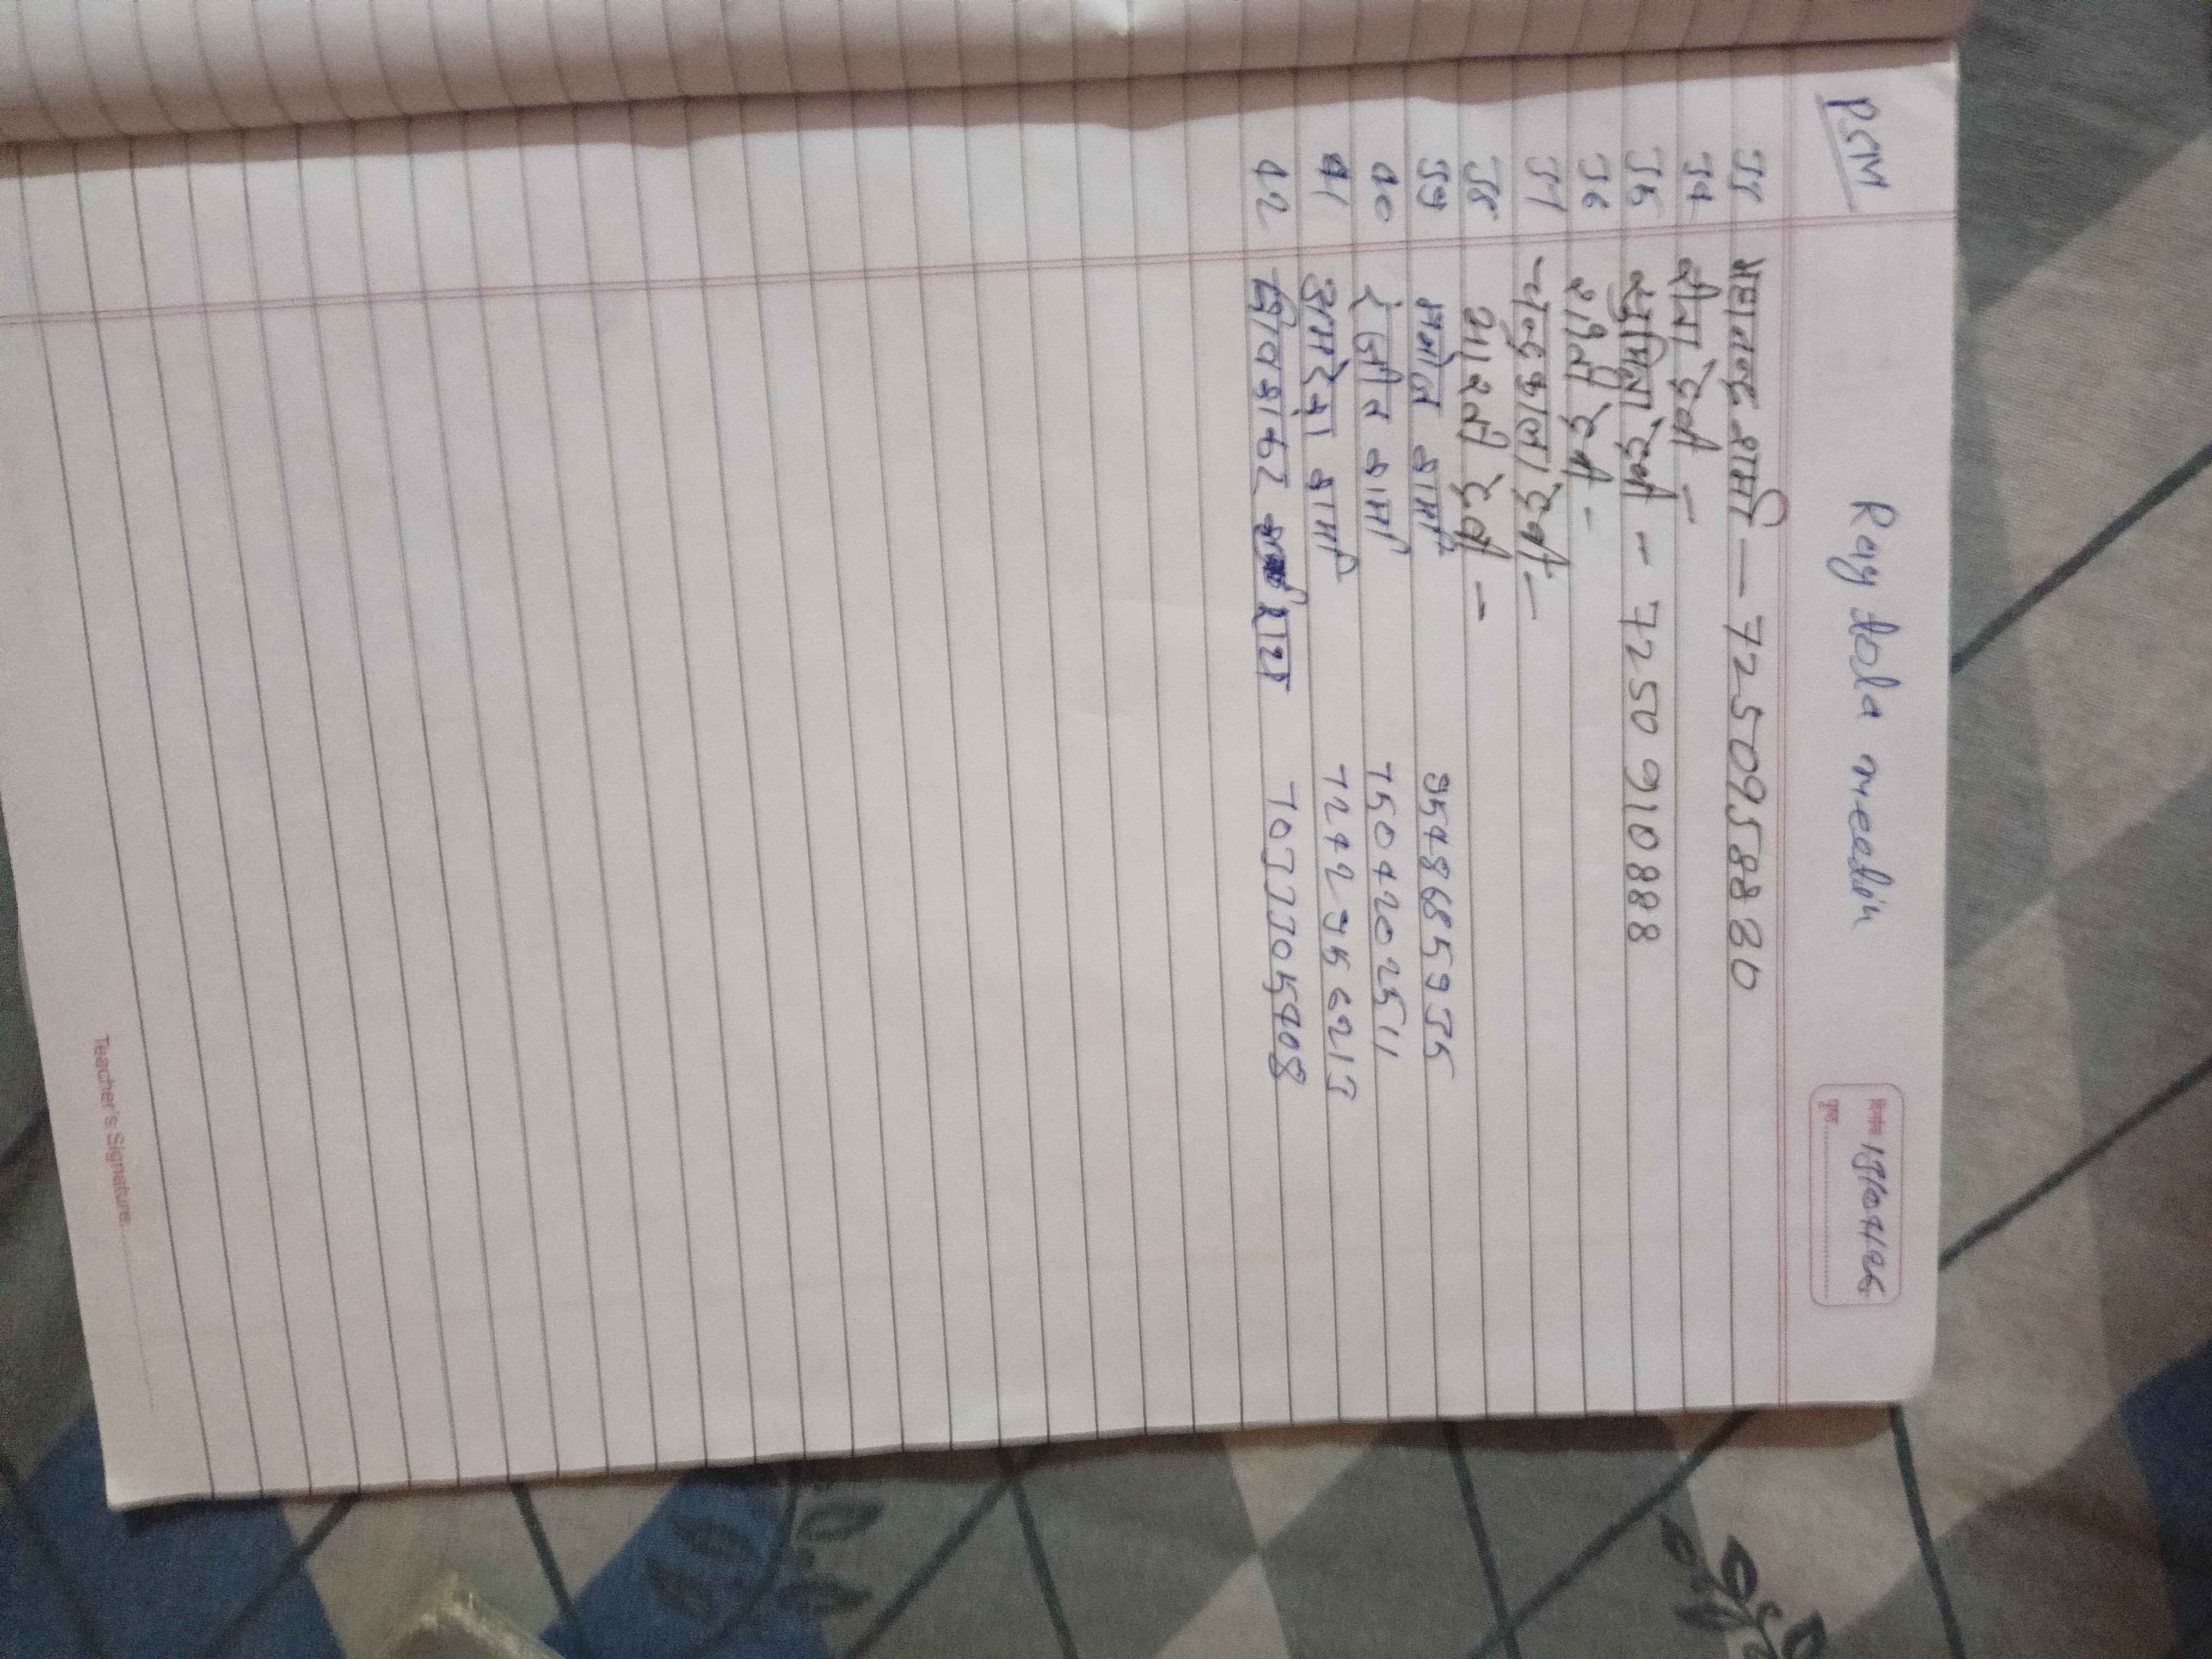 PCM
Ray tola meetin
दिनांक 19/04/26
पृष्ठ
33 महानन्द शर्मा — 7250958880
34 मीना देवी –
35 सुमित्रा देवी – 7250910888
36 शोभा देवी –
37 चन्द्रकला देवी –
38 भारती देवी –
39 मनोज शर्मा 9548685935
40 रंजीत शर्मा 7504202511
41 अमरेश शर्मा 7242956213
42 शिवशंकर शर्मा 7033305408
Teacher's Signature